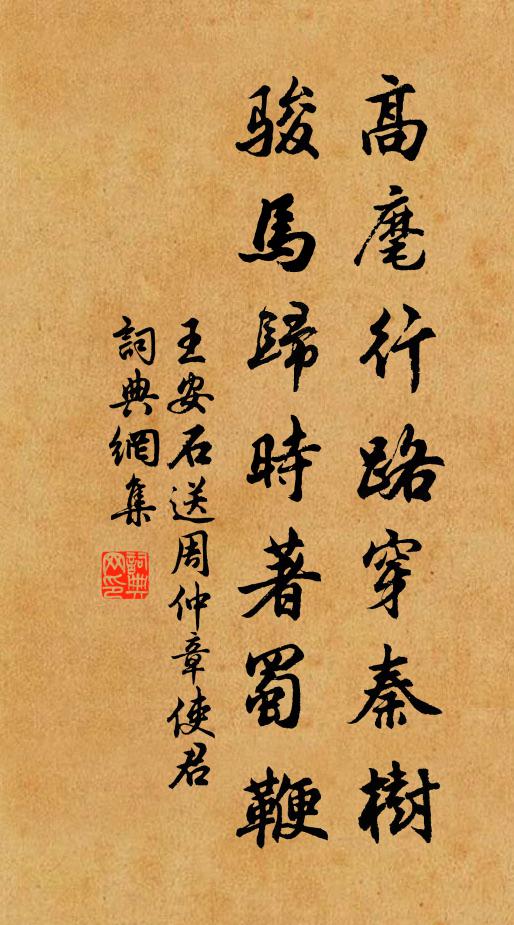 高麾行路穿秦樹
骏馬歸時著蜀鞭
王安石送周仲章使君
詞典網集
詞典网印